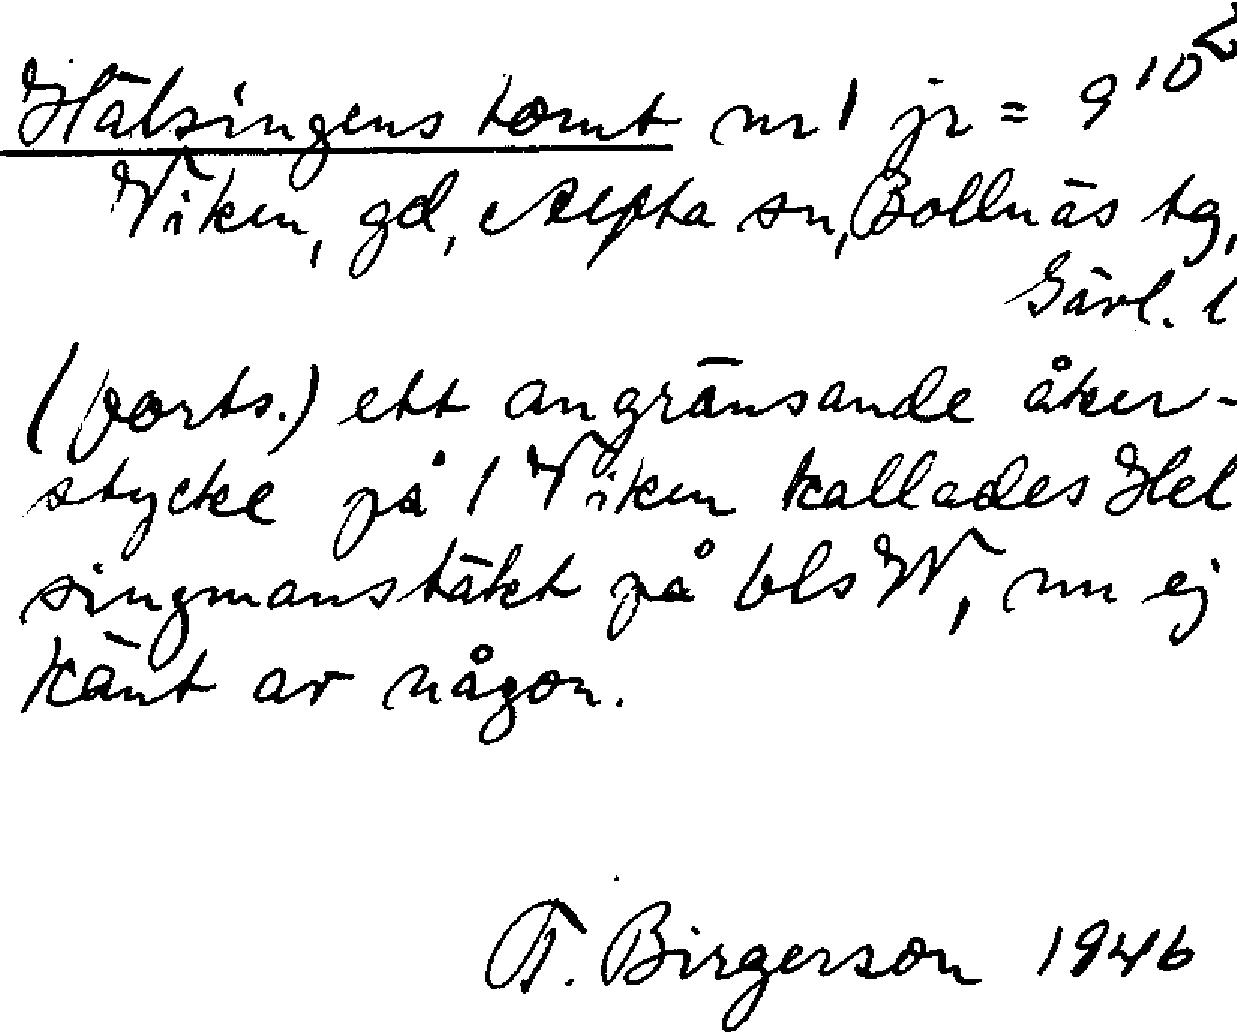 Hälsingens tomt nr 1 jr = 9 10 2
Viken, gd, Alfta sn, Bollnäs tg,
Gävl. l
(forts.) ett angränsande åker-
stycke på 1 Viken kallades Hel
singmanstäkt på bls W, nu ej
känt av någon.
T. Birgerson 1946